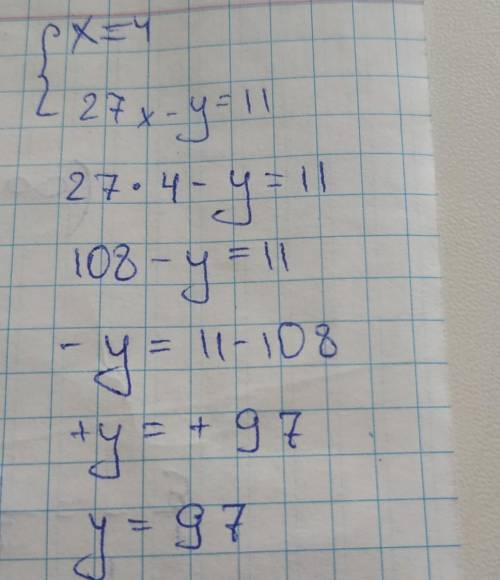 { x = 4
27x - y = 11
27 · 4 - y = 11
108 - y = 11
- y = 11 - 108
+y = + 97
y = 97